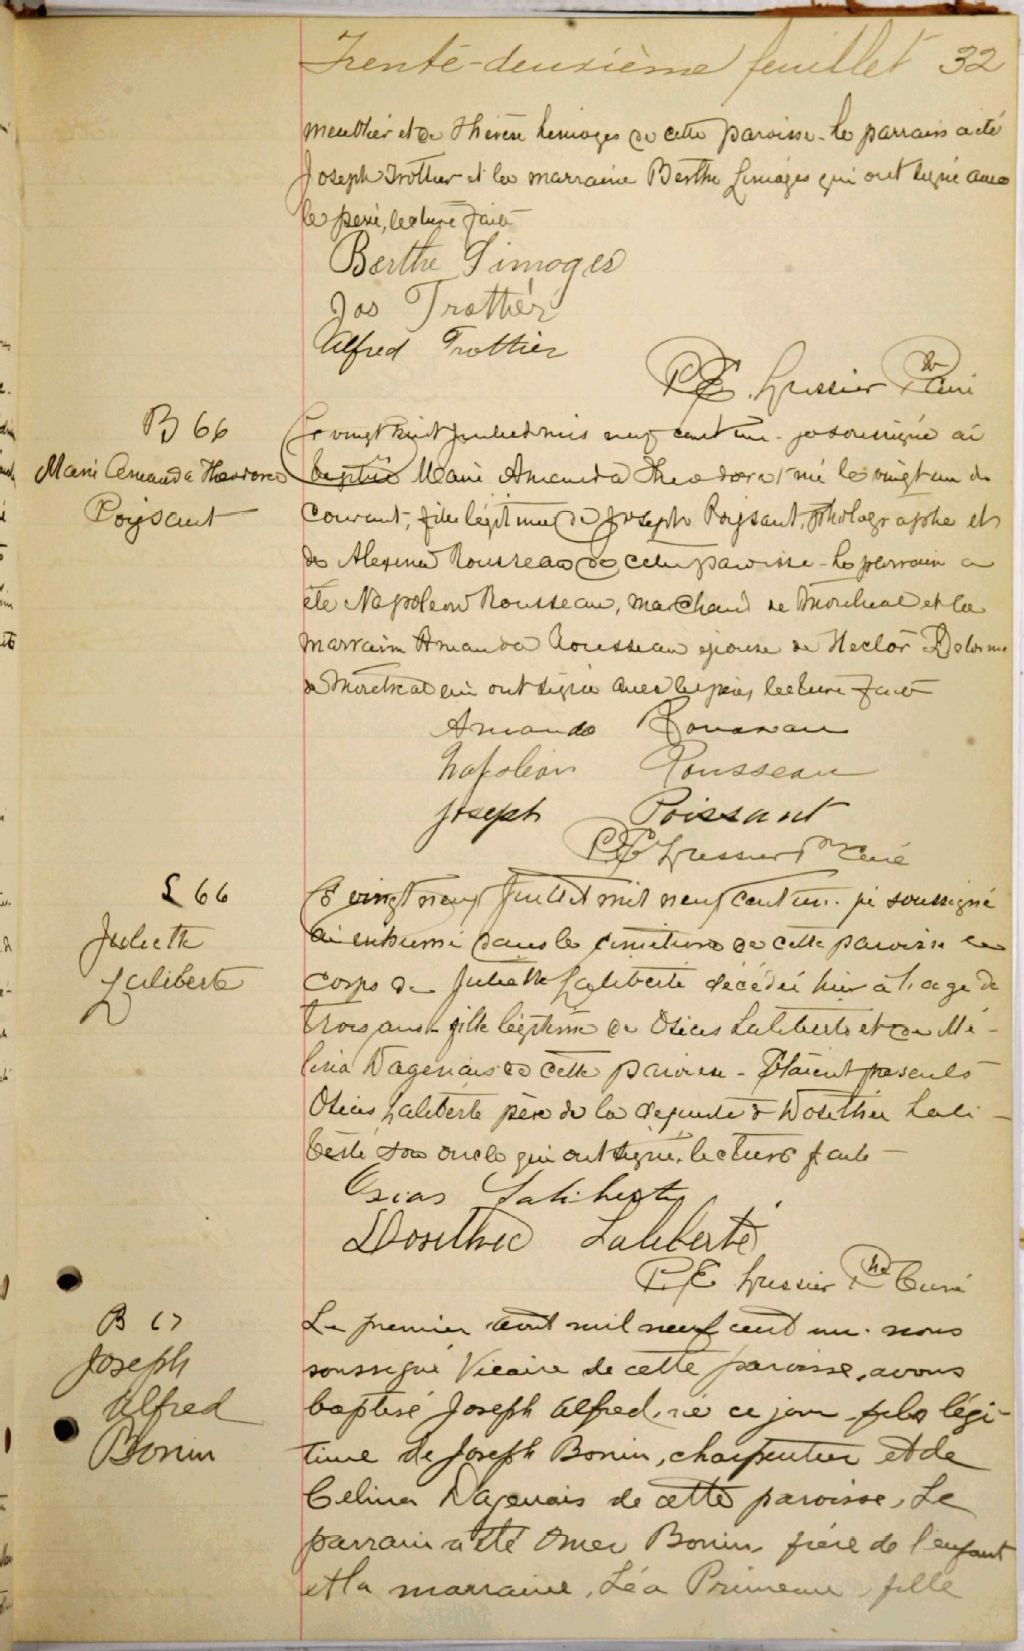 Trente-deuxième feuillet 32
meublier et de Thérèse Limoges de cette paroisse - le parrain a été
Joseph Trottier et la marraine Berthe Limoges qui ont signé avec
le père, lecture faite
Berthe Limoges
Jos Trottier
Alfred Trottier
P.E. Lussier Ptre Curé
B 66
Marie Amanda Theodora
Poissant
Ce vingt huit Juillet mil neuf cent un - je soussigné ai
baptisé Marie Amanda Theodora née le vingt un du
courant, fille légitime de Joseph Poissant, photographe et
de Alexina Rousseau de cette paroisse - le parrain a
été Napoleon Rousseau, marchand de Montreal et la
marraine Amanda Rousseau épouse de Hector Delorme
de Montreal qui ont signé avec le père, lecture faite
Amanda Rousseau
Napoléon Rousseau
Joseph Poissant
P.E Lussier Ptre Curé
S 66
Juliette
Laliberté
Ce vingt neuf Juillet mil neuf cent un - je soussigné
ai inhumé dans le cimetière de cette paroisse le
corps de Juliette Laliberté décédée hier à l'age de
trois ans - fille légitime de Osias Laliberté et de Mé-
lina Dagenais de cette paroisse - Étaient présents
Osias Laliberté père de la defunte & Dosithée Lali-
berté son oncle qui ont signé, lecture faite -
Osias Laliberté
Dosithée Laliberté
P.E Lussier Ptre Curé
B 67
Joseph
Alfred
Bonin
Le premier août mil neuf cent un - nous
soussigné Vicaire de cette paroisse, avons
baptisé Joseph Alfred, né ce jour, fils légi-
time de Joseph Bonin, charpentier et de
Celina Dagenais de cette paroisse. Le
parrain a été Omer Bonin, frère de l'enfant
et la marraine, Léa Primeau, fille